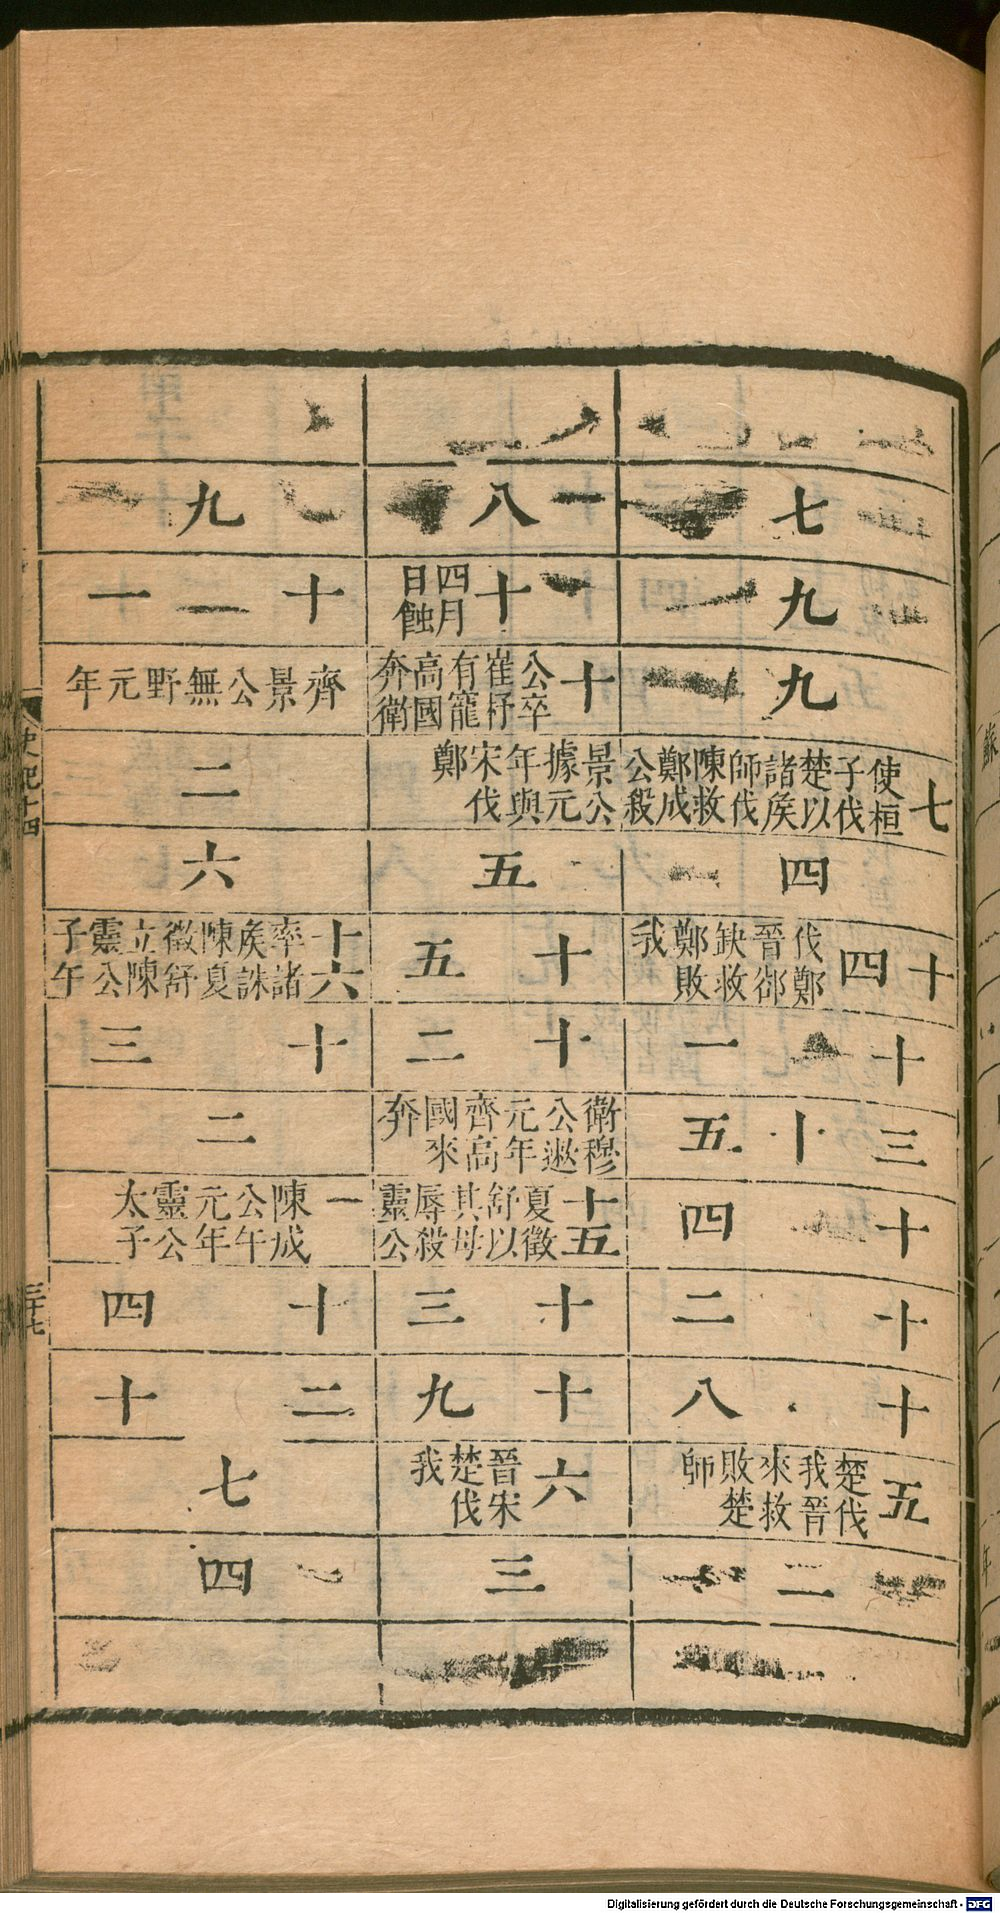 七
九
九
七 使桓子伐楚以諸矦師伐陳救鄭成公殺
四
十四 伐鄭晉郤缺救鄭敗我
十一
三十五
十四
十二
十八
五 楚伐我晉來救敗楚師
二
八
十 四月日蝕
十 公卒崔杼有寵高國奔衛
景公據元年與宋伐鄭
五
十五
十二
衛穆公遬元年齊高國來奔
十五 夏徵舒以其母辱殺靈公
十三
十九
六 晉宋楚伐我
三
九
十一
齊景公無野元年
二
六
十六 率諸矦誅陳夏徵舒立陳靈公子午
十三
二
一 陳成公午元年靈公太子
十四
二十
七
四
史記十四
三十七
Digitalisierung gefördert durch die Deutsche Forschungsgemeinschaft - DFG